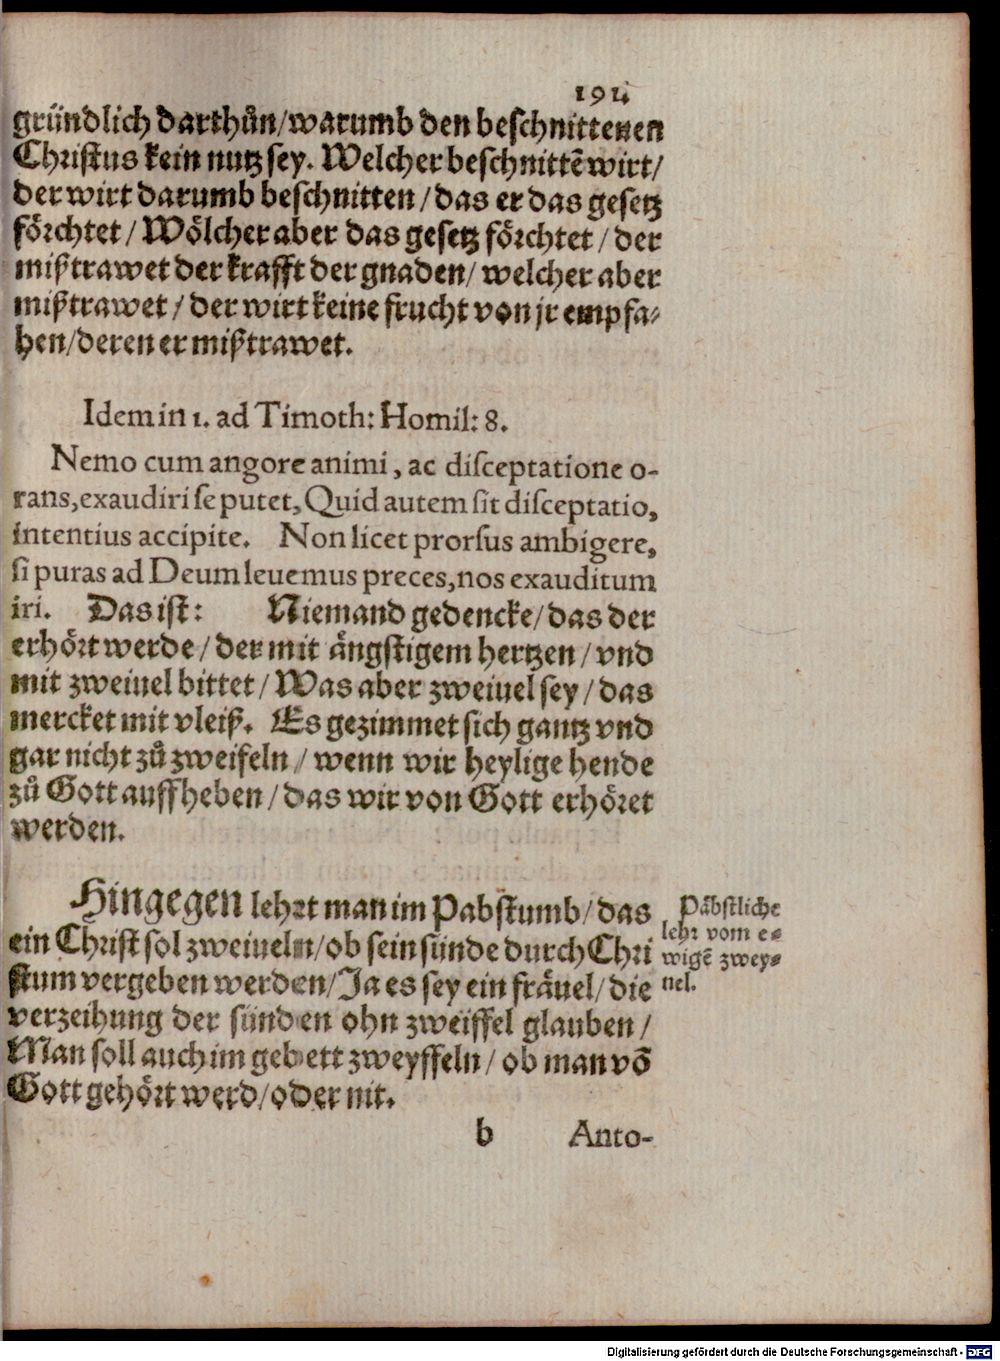 191
gründlich darthůn/warumb den beschnittenen
Christus kein nutz sey. Welcher beschnittē wirt/
der wirt darumb beschnitten/das er das gesetz
förchtet/Wölcher aber das gesetz förchtet/der
mißtrawet der krafft der gnaden/welcher aber
mißtrawet/der wirt keine frucht von jr empfa-
hen/deren er mißtrawet.
Idem in 1. ad Timoth: Homil: 8.
Nemo cum angore animi, ac disceptatione o-
rans, exaudiri se putet, Quid autem sit disceptatio,
intentius accipite. Non licet prorsus ambigere,
si puras ad Deum leuemus preces, nos exauditum
iri. Das ist: Niemand gedencke/das der
erhört werde/der mit ängstigem hertzen/vnd
mit zweiuel bittet/Was aber zweiuel sey/das
mercket mit vleiß. Es gezimmet sich gantz vnd
gar nicht zů zweifeln/wenn wir heylige hende
zů Gott auffheben/das wir von Gott erhöret
werden.
Hingegen lehrt man im Pabstumb/das
ein Christ sol zweiueln/ob sein sünde durch Chri
stum vergeben werden/Ja es sey ein fräuel/die
verzeihung der sünden ohn zweiffel glauben/
Man soll auch im gebett zweyffeln/ob man vō
Gott gehört werd/oder nit.
Päbstliche
lehr vom e-
wigē zwey-
uel.
b Anto-
Digitalisierung gefördert durch die Deutsche Forschungsgemeinschaft - DFG